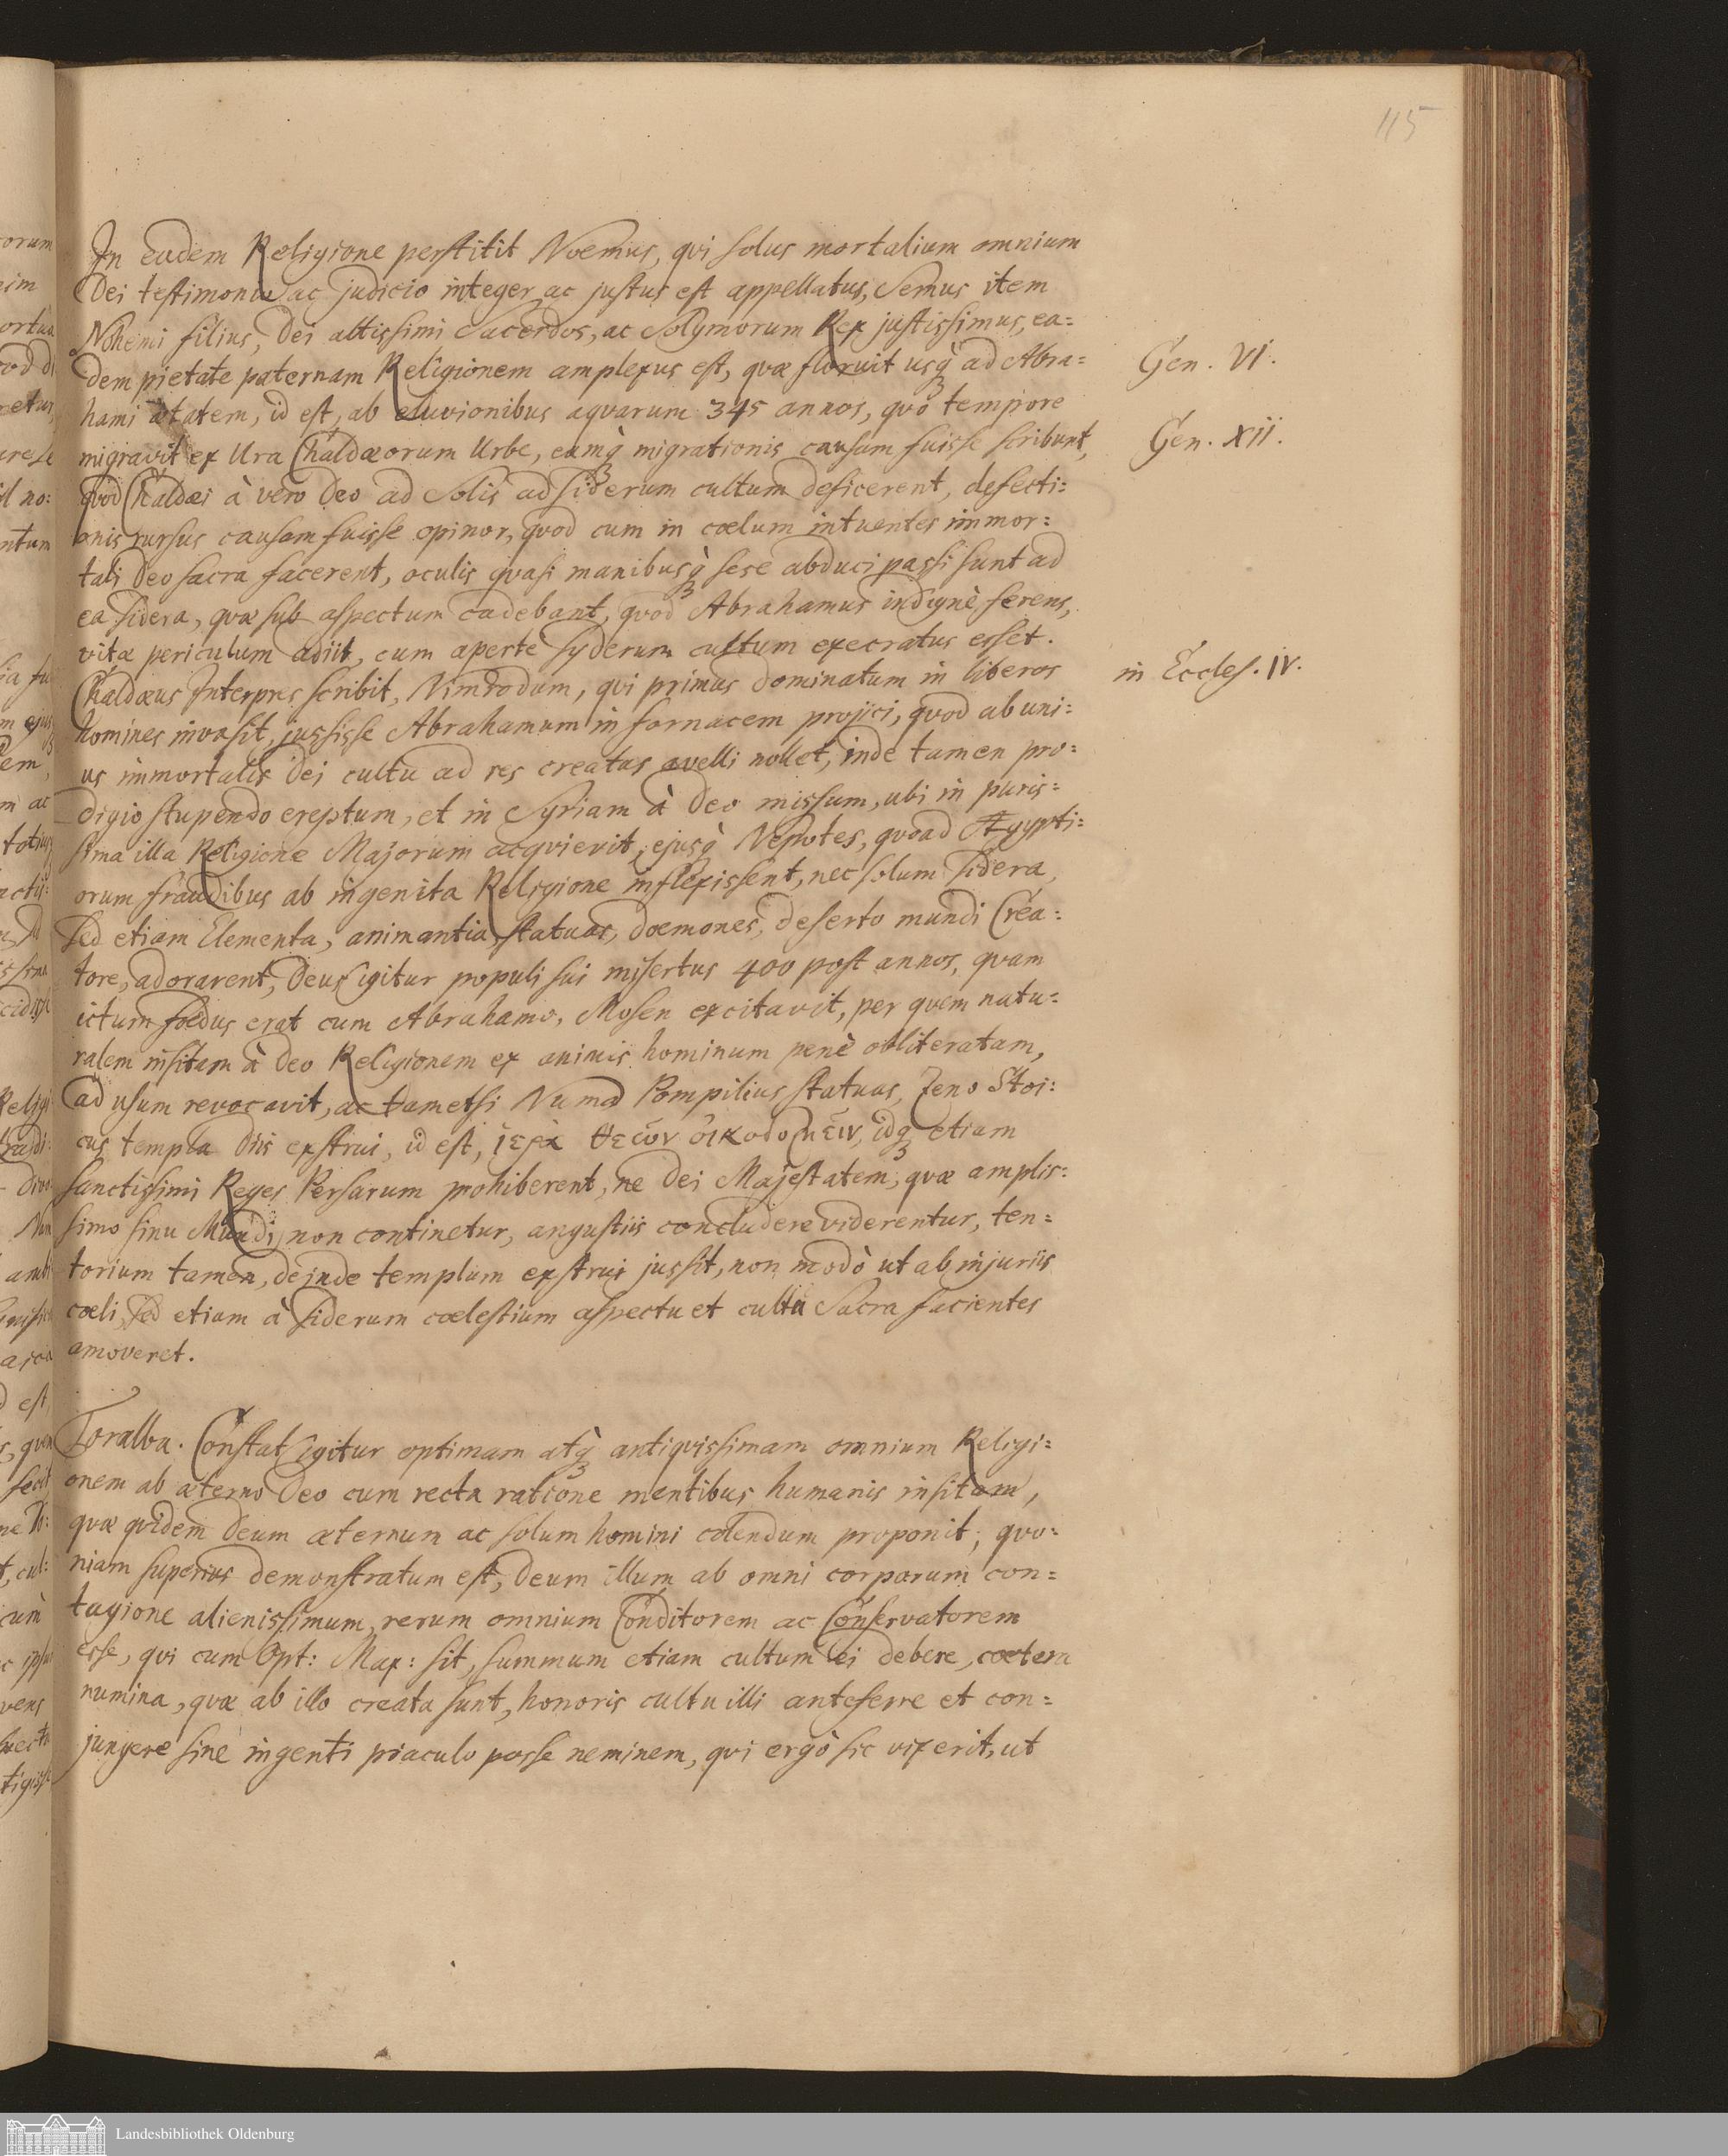 115
In eadem Religione perstitit Noemus, qvi solus mortalium omnium
Dei testimonio ac judicio integer ac justus est appellatus, Semus item
Nohemi filius, Dei altissimi Sacerdos, ac Solymorum Rex justissimus, ea=
dem pietate paternam Religionem amplexus est, qvæ floruit usq̀ ad Abra=
Gen. VI.
hami ætatem, id est, ab eluvionibus aqvarum 345 annos, qvo tempore
migravit ex Ura Chaldæorum Urbe, eamq̀ migrationis causam fuisse scribunt,
Gen. XII.
qvod Chaldæi à vero Deo ad Solis ad siderum cultum deficerent, defecti=
onis rursus causam fuisse opinor, qvod cum in cœlum intuentes immor=
tali Deo sacra facerent, oculis qvasi manibusq̀ sese abduci passi sunt ad
ea sidera, qvæ sub aspectum cadebant, qvod Abrahamus indignè ferens,
vitæ periculum adiit, cum aperte syderum cultum execratus esset.
Chaldæus Interpres scribit, Nimrodum, qvi primus dominatum in liberos
in Eccles. IV.
homines invasit, jussisse Abrahamum in fornacem projici, qvod ab uni=
us immortalis Dei cultu ad res creatas avelli nollet, inde tamen pro=
digio stupendo ereptum, et in Syriam à Deo missum, ubi in puris=
sima illa Religione Majorum acqvievit, ejusq̀ Nepotes, qvoad Ægypti=
orum fraudibus ab ingenita Religione inflexissent, nec solum sidera,
sed etiam Elementa, animantia, statuas, dœmones, deserto mundi Crea=
tore, adorarent, Deus igitur populi sui misertus 400 post annos, qvam
ictum fœdus erat cum Abrahamo, Mosen excitavit, per qvem natu=
ralem insitam à Deo Religionem ex animis hominum penè obliteratam,
ad usum revocavit, ac tametsi Numa Pompilius statuas, Zeno Stoi=
cus templa Diis exstrui, id est, ἱερὰ θεῶν οἰκοδομεῖν, idq̀ etiam
sanctissimi Reges Persarum prohiberent, ne Dei Majestatem, qvæ amplis=
simo sinu Mundi non continetur, angustiis concludere viderentur, ten=
torium tamen, deinde templum exstrui jussit, non modò ut ab injuriis
cœli, sed etiam à siderum cœlestium aspectu et cultu Sacra facientes
amoveret.
Toralba. Constat igitur optimam atq̀ antiqvissimam omnium Religi=
onem ab æterno Deo cum recta ratione mentibus humanis insitam,
qvæ qvidem Deum æternum ac solum homini colendum proponit; qvo=
niam superius demonstratum est, Deum illum ab omni corporum con=
tagione alienissimum, rerum omnium Conditorem ac Conservatorem
esse, qvi cum Opt: Max: sit, summum etiam cultum ei debere, cœtera
numina, qvæ ab illo creata sunt, honoris cultu illi anteferre et con=
jungere sine ingenti piaculo posse neminem, qvi ergò sic vixerit, ut
Landesbibliothek Oldenburg